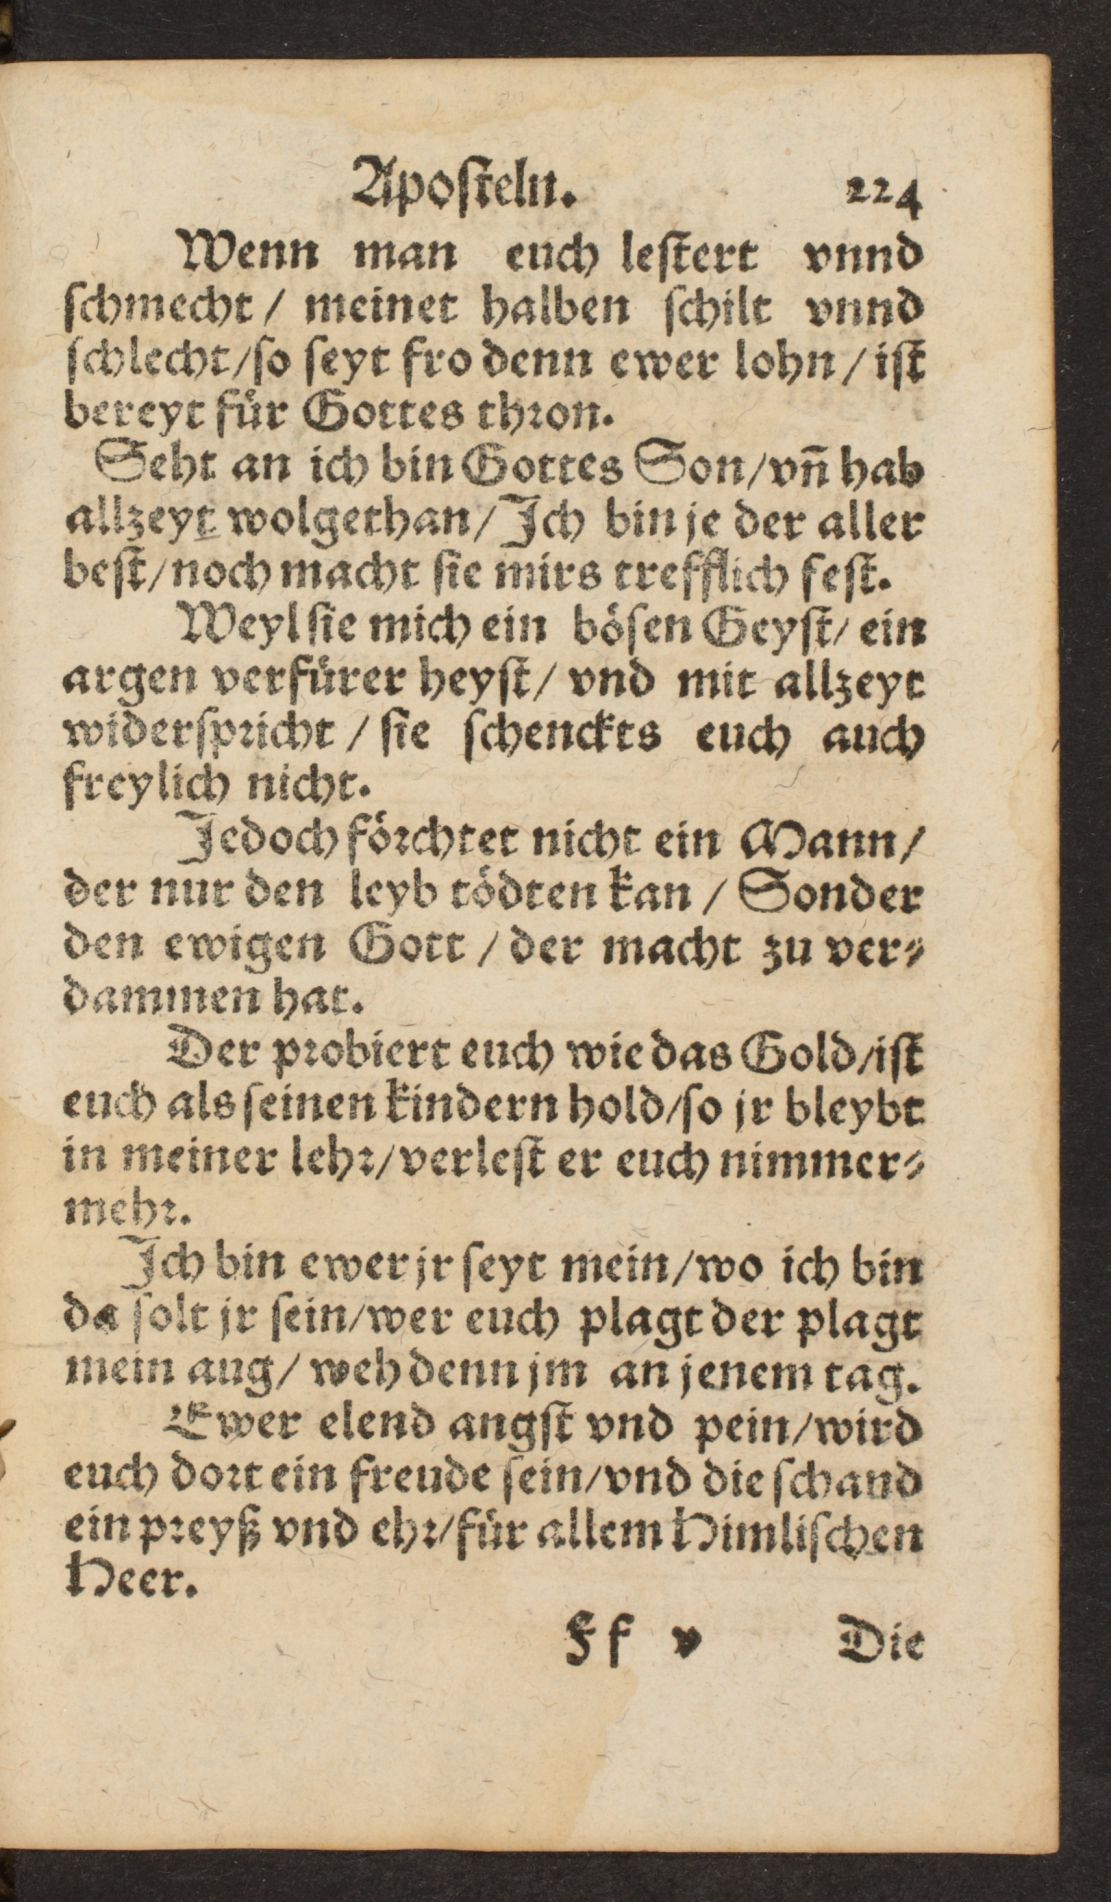 Apoſteln. 224
Wenn man euch leſtert vnnd
ſchmecht / meinet halben ſchilt vnnd
ſchlecht / ſo ſeyt fro denn ewer lohn / iſt
bereyt für Gottes thron.
Seht an ich bin Gottes Son / vn̄ hab
allzeyt wolgethan / Ich bin je der aller
beſt / noch macht ſie mirs trefflich feſt.
Weyl ſie mich ein böſen Geyſt / ein
argen verfürer heyſt / vnd mit allzeyt
widerſpricht / ſie ſchenckts euch auch
freylich nicht.
Jedoch förchtet nicht ein Mann /
der nur den leyb tödten kan / Sonder
den ewigen Gott / der macht zu ver⸗
dammen hat.
Der probiert euch wie das Gold / iſt
euch als ſeinen kindern hold / ſo jr bleybt
in meiner lehr / verleſt er euch nimmer⸗
mehr.
Ich bin ewer jr ſeyt mein / wo ich bin
da ſolt jr ſein / wer euch plagt der plagt
mein aug / weh denn jm an jenem tag.
Ewer elend angſt vnd pein / wird
euch dort ein freude ſein / vnd die ſchand
ein preyß vnd ehr / für allem Himliſchen
Heer.
Ff v Die